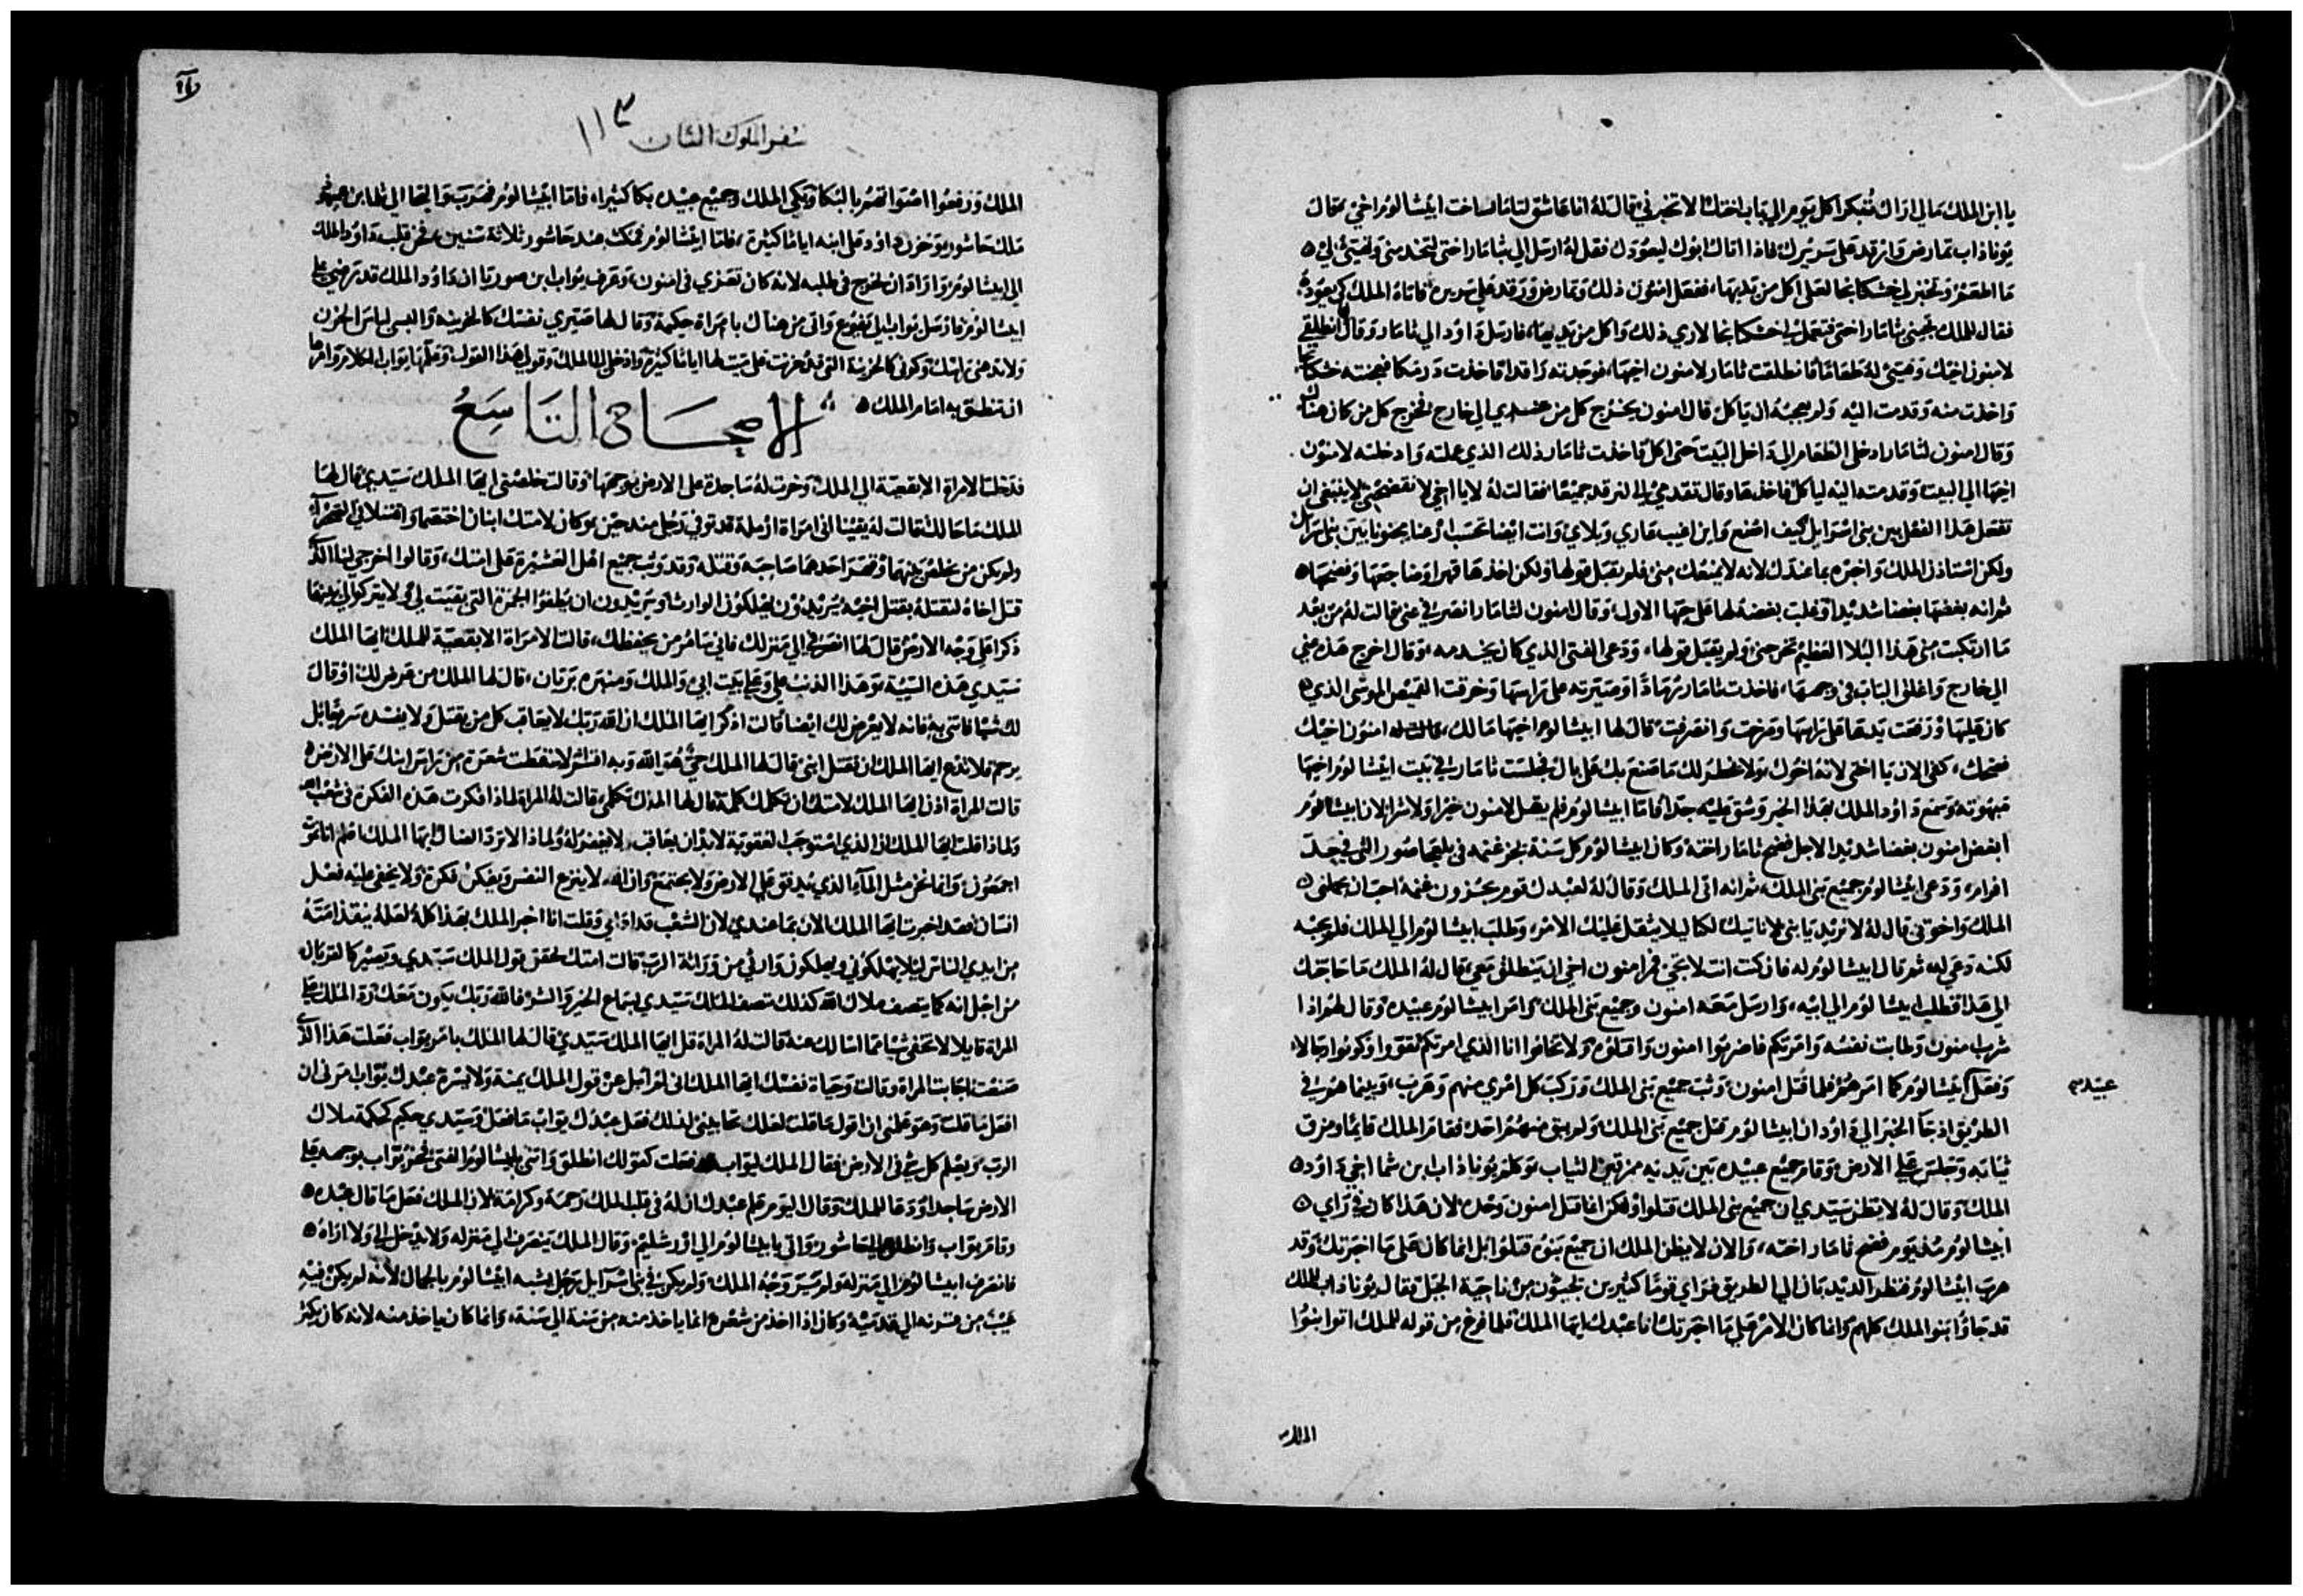 يا ابن الملك مالي اراك تفكر كل يوم الي باب اختك الا تخبرني قال له انا عاشق لثامار اخت ابيشالوم اخي فقال
يوناذاب تمارض وارقد علي سريرك فاذا اتاك ابوك ليعودك فقل له ارسل الي ثامار اختي لتخدمني وتهيئ لي
ما اطعم وتخبز لي خشكنانجا لعلي اكل من يديها، ففعل امنون ذلك وتمارض ورقد علي سريره فاتاه الملك لكي يعوده
فقال للملك تجيني ثامار اختي فتعمل لي خشكنانجا لاري ذلك واكل من يديها، فارسل داود الي ثامار وقال انطلقي
لامنون اخيك وهيئي له طعاما فانطلقت ثامار لامنون اخيها، فوجدته راقدا فاخذت درمكا فعجنته خشكنانجا
واخذت منه وقدمت اليه ولم يعجبه ان ياكل قال امنون يخرج كل من عندي الي خارج فخرج كل من كان هناك
وقال امنون لثامار ادخلي الطعام الي داخل البيت حتي اكل فاخذت ثامار ذلك الذي عملته وادخلته لامنون
اخيها الي البيت وقدمته اليه لياكل فاخذها وقال تقدمي الي لنرقد جميعا فقالت له لا يا اخي لا تفضحني لا ينبغي ان
تفعل هذا الفعل بين بني اسرايل كيف اصنع واين اغيب عاري وبلاي وانت ايضا تحسب ارعنا مجنونا بين بني اسرايل
ولكن استاذن الملك واخبره بما عندك لانه لا يمنعك مني فلم يقبل قولها ولكن اخذها قهرا وضاجعها وفضحها
ثم انه بغضها بغضا شديدا وغلب بغضه لها علي حبها الاول وقال امنون لثامار انصرفي عني قالت له من بعد
ما ارتكبت مني هذا البلا العظيم تخرجني ولم يقبل قولها، ودعي الفتي الذي كان يخدمه وقال اخرج هذه عني
الي خارج واغلق الباب في وجهها، فاخذت ثامار رمادا وصيرته علي راسها وخرقت القميص الموشي الذي
كان عليها ورفعت يدها علي راسها وصرخت وانصرفت قال لها ابيشالوم اخيها مالك، امنون اخيك
فضحك، كفي الان يا اختي لانه اخوك ولا يخطر لك ما صنع بك علي بال فجلست ثامار في بيت ابيشالوم اخيها
مبهوته وسمع داود الملك بهذا الخبر وشق عليه جدا فاما ابيشالوم فلم يقل لامنون خيرا ولا شرا لان ابيشالوم
ابغض امنون بغضا شديدا لاجل فضيح ثامار اخته وكان ابيشالوم كل سنة يجز غنمه في بلعحاصور التي في حد
افرام، ودعي ابيشالوم جميع بني الملك، ثم انه اتي الملك وقال له لعبدك قوم يجزون غنمه احب انه يجيني
الملك واخوتي قال له لا نريد يا بني لا ناتيك لكنا ليلا يثقل عليك الامر، وطلب ابيشالوم الي الملك فلم يجبه
لكنه دعي له ثم قال ابيشالوم له فان كنت انت لا تجي فمر امنون اخي ان ينطلق معي، قال له الملك ما حاجتك
الي هذا فطلب ابيشالوم الي ابيه، وارسل معه امنون وجميع بني الملك وامر ابيشالوم عبيده وقال لهم اذا
شرب امنون وطابت نفسه وامرتكم فاضربوا امنون واقتلوه ولا تخافوا انا الذي امرتكم تقووا وكونوا رجالا،
وفعل ابيشالوم كما امرهم فلما قتل امنون، وثب جميع بني الملك وركب كل امري منهم وهرب، وبينما هم في
عبيد
الطريق اذ جا الخبر الي داود ان ابيشالوم قتل جميع بني الملك ولم يبق منهم احد فقام الملك قائما ومزق
ثيابه وجلس علي الارض وقام جميع عبيده بين يديه ممزقين الثياب وكلم يوناذاب ابن شما اخي داود
الملك وقال له لا يظن سيدي ان جميع بني الملك قتلوا ولكن انما قتل امنون وحده لان هذا كان في راي
ابيشالوم منذ يوم فضح ثامار اخته، والان لا يظن الملك ان جميع بنوه قتلوا بل انما كان علي ما اخبرتك وقد
هرب ابيشالوم فنظر الديدبان الي الطريق فراي قوما كثيرين يجيئون من ناحية الجبل فقال يوناذاب للملك
قد جاوا بنوا الملك كلهم وانما كان الامر علي ما اخبرتك انا عبدك ايها الملك فلما فرغ من قوله للملك اتوا بنوا
الملك
سفر الملوك الثان ١١٣
الملك ورفعوا اصواتهم بالبكا وبكي الملك وجميع عبيده بكا كثيرا، فاما ابيشالوم فهرب والتجا الي تلما بن عميهود
ملك جاشور وحزن داود علي ابنه اياما كثيرة، فاما ابيشالوم فمكث عند جاشور ثلاثة سنين، فحن قلب داود الملك
الي ابيشالوم واراد ان يخرج في طلبه لانه كان تعزي في امنون، وعرف يواب ابن صوريا ان داود الملك قد رضي علي
ابيشالوم فارسل يواب الي تقوع واتي من هناك بامراة حكيمة وقال لها صيري نفسك كالحزينه والبسي لباس الحزن
ولا تدهني راسك وكوني كالحزينة التي قد حزنت علي ميت لها اياما كثيرة وادخلي الي الملك وقولي هذا القول وعلمها يواب الكلام وامرها
ان تنطق به امام الملك
الاصحاح التاسع
فدخلت الامراة الابقعية الي الملك وخرت له ساجدة علي الارض بوجهها وقالت خلصني ايها الملك سيدي قال لها
الملك ما حالك فقالت له يقينا اني امراة ارملة قد توفي رجلي منذ حين وكان لامتك ابنان اختصما واقتتلا في الصحراء
ولم يكن من يخلص بينهما وقهر احدهما صاحبه وقتله وقد وثب جميع اهل العشيرة علي امتك، وقالوا اخرجي لنا الذي
قتل اخاه لنقتله بقتل اخيه يريدون يهلكون الوارث ويريدون ان يطفوا الجمرة التي بقيت لي ولا يتركوا لي
ذكرا علي وجه الارض قال لها انصرفي الي منزلك فاني سامر من يحفظك، قالت الامراة الابقعية للملك ايها الملك
سيدي هذه السيئة وهذا الذنب علي وعلي بيت ابي، والملك ومنبره بريان، قال لها الملك من عرض لك او قال
لك شيا فاتي به فانه لا يعرض لك ايضا قالت اذكر ايها الملك ان الله ربك لا يعاقب كل من يقتل ولا يفسد سريعا بل
يرحم فلا تدع ايها الملك ان يقتل ابني قال لها الملك حي هو الله وبه اقسم لا تسقطت شعرة من راس ابنك علي الارض
قالت المراة اذن ايها الملك لامتك ان تكلمك كلمة قال لها الملك تكلمي، قالت له المراة لماذا فكرت هذه الفكرة في شعب الله
ولماذا قلت ايها الملك ان الذي استوجب العقوبة لابد ان يعاقب، لا يغفر له ولماذا لا ترد الضال ايها الملك
اجمعون، وانما نحن مثل الماء الذي يدفق علي الارض ولا يجتمع وان الله لا ينزع النفس ويفكر فكرة ولا يخفي عليه فعل
انسان فقد اخبرت ايها الملك الان بما عندي لان الشعب قد اذاني وقلت انا اخبر الملك بهذا كله لعله ينقذ امته
من ايدي الناس ليلا يهلكوني ويهلكون وارثي من وراثة الرب قالت امتك لحقق قول الملك سيدي ويصير كالقربان
من اجل انه كما يتصف ملاك الله كذلك تصف الملك سيدي لسماع الخير والشر فالله ربك يكون معك رد الملك علي
المراة قايلا لا تخفي شيا مما اسالك عنه قالت له المراة قل ايها الملك سيدي قال لها الملك بامر يواب فعلت هذا الذي
صنعت اجابت المراة وقالت وحياة نفسك ايها الملك اني لم امل عن قول الملك يمنة ولا يسرة عبدك يواب امرني ان
افعل ما قلت وهو علمني ان اقول ما قلت لذلك فعل عبدك يواب ما فعل وسيدي حكيم كحكمة ملاك
الرب ويعلم كل شي في الارض فقال الملك ليواب قد فعلت كقولك انطلق واتني بابيشالوم الفتي فخر يواب بوجهه علي
الارض ساجدا ودعا للملك وقال اليوم علم عبدك ان له في قلب الملك رحمة وكرامة لان الملك فعل ما قال عبده
وقام يواب وانطلق الي جاشور، واتي بابيشالوم الي اورشليم، وقال الملك ينصرف الي منزله ولا يدخل الي ولا اراه
فانصرف ابيشالوم الي منزله ولم ير وجه الملك، ولم يكن في بني اسرائيل رجل يشبه ابيشالوم بالجمال لانه لم يكن فيه
عيب من قرنه الي قدميه وكان اذا اخذ من شعره انما ياخذ منه من سنة الي سنة، وانما كان ياخذ منه لانه كان يكثر